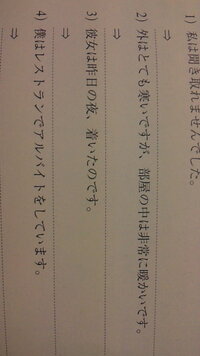 1) 私は聞き取れませんでした。
⇒
2) 外はとても寒いですが、部屋の中は非常に暖かいです。
⇒
3) 彼女は昨日の夜、着いたのです。
⇒
4) 僕はレストランでアルバイトをしています。
⇒